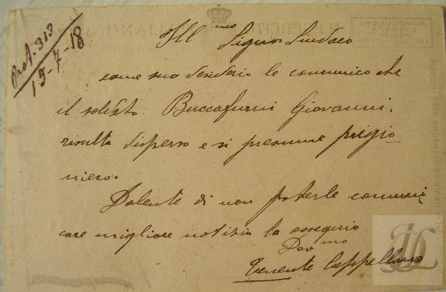 Prot. 313
15-7-18
Ill.mo Signor Sindaco
come suo desiderio le comunico che
il soldato Buccafurni Giovanni,
risulta disperso e si presume prigio
niero.
Dolente di non poterle comuni
care migliore notizia la ossequio
Dev.mo
Tenente Cappellano